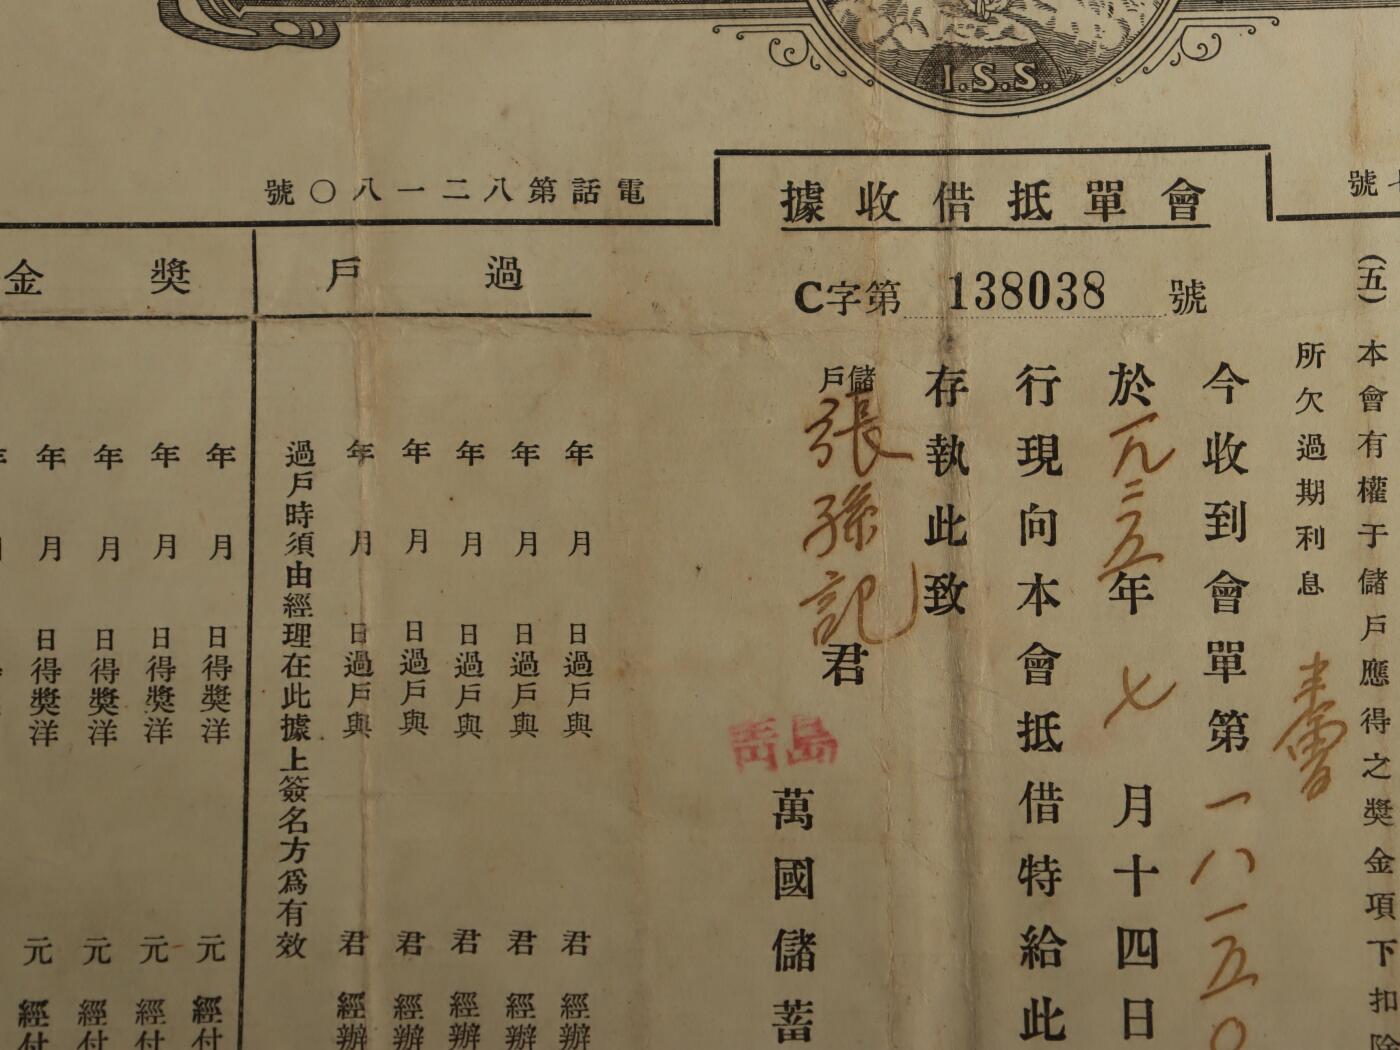 I.S.S.
號七
會單抵借收據
電話第八二一八〇號
C字第 138038 號
(五)本會有權于儲戶應得之獎金項下扣除
所欠過期利息
今收到會單第一八一五〇
於一九三五年七月十四日
行現向本會抵借特給此
存執此致
儲戶
張孫記君
青島
萬國儲蓄
過戶
年月日過戶與君經辦
年月日過戶與君經辦
年月日過戶與君經辦
年月日過戶與君經辦
年月日過戶與君經辦
過戶時須由經理在此據上簽名方爲有效
獎金
年月日得獎洋元經付
年月日得獎洋元經付
年月日得獎洋元經付
年月日得獎洋元經付